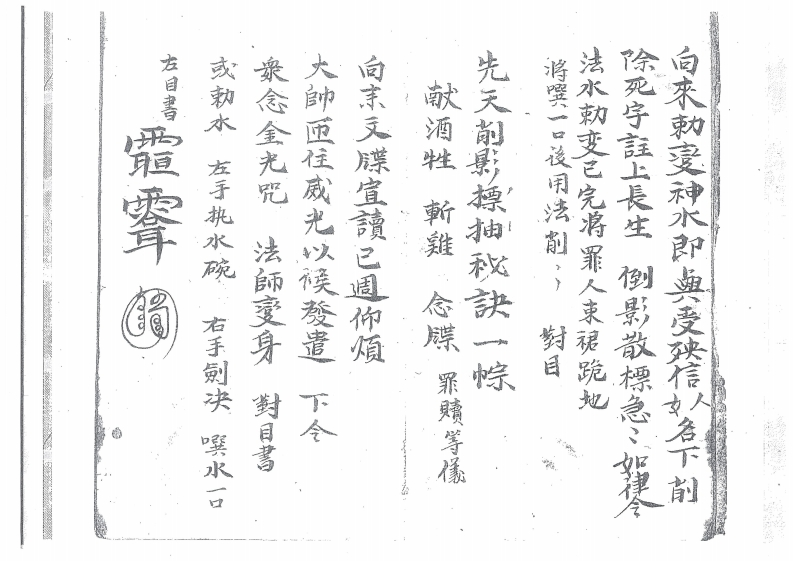 向來勅変神水即與受殃信人名下削
除死字註上長生 倒影散標急〻如律令
法水勅变已完將罪人束裙跪地
將噀一口後用法削〻 對目
先天削影摽抽秘訣一宗
献酒牲 斬雞 念牒 罪贖等儀
向来文牒宣讀已週仰煩
大帥匝住威光以候發遣 下令
衆念金光咒 法師變身 對目書
或勅水 左手执水碗 右手劍决 噀水一口
左目書